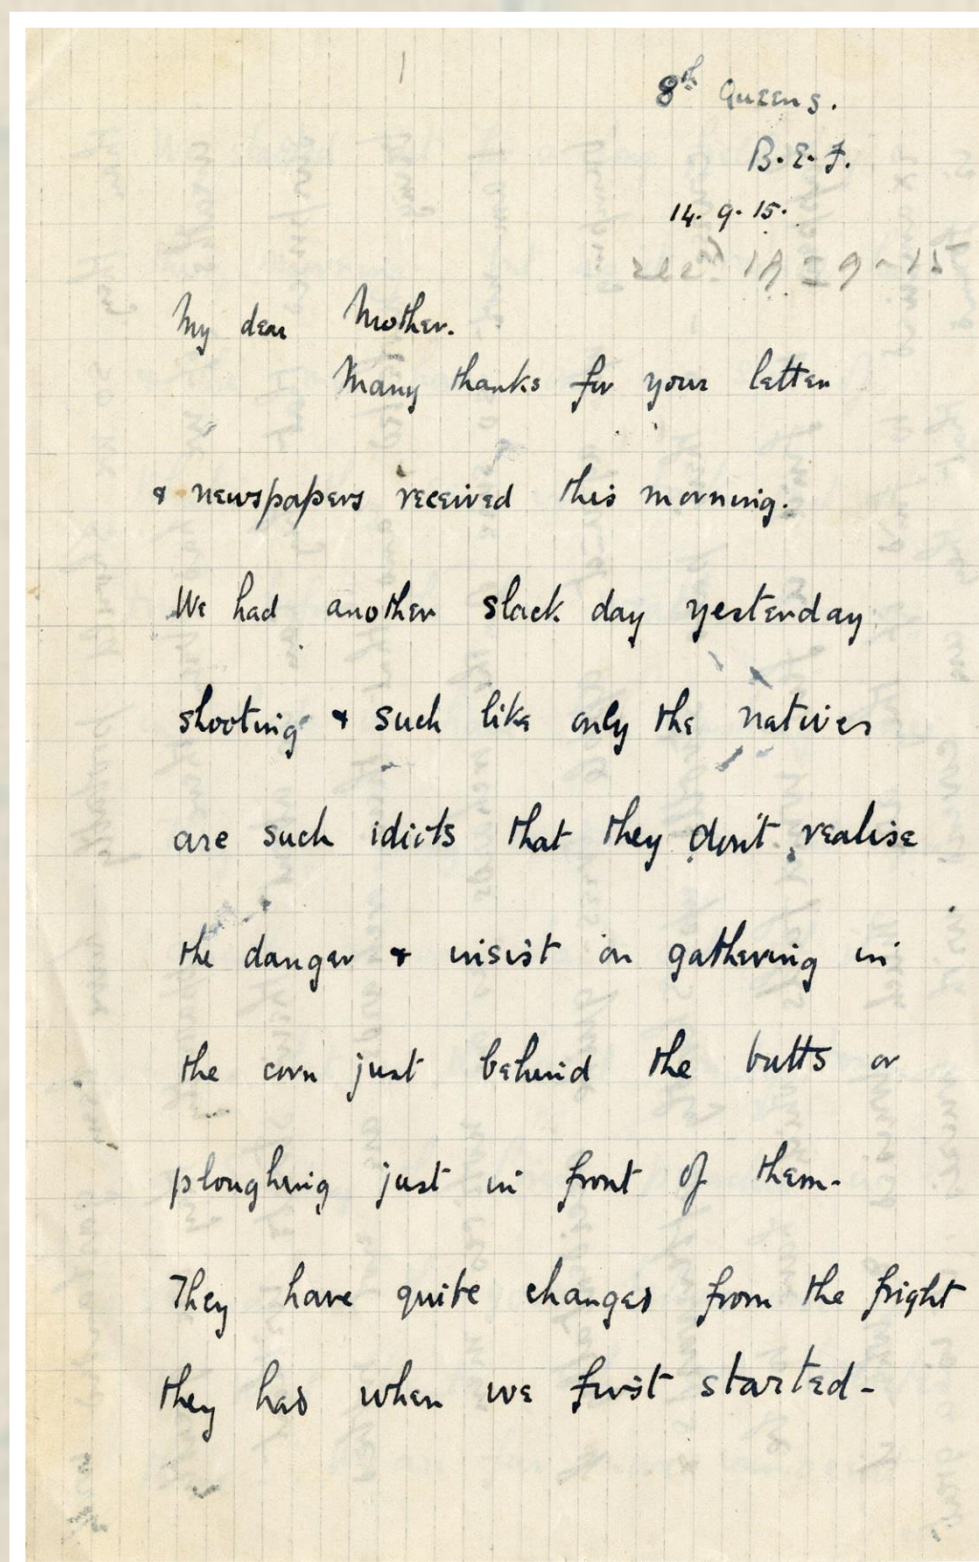 1
8th Queens.
B.E.F.
14.9.15.
recd 19-9-15
My dear Mother.
Many thanks for your letter
& newspapers received this morning.
We had another slack day yesterday
shooting & such like only the natives
are such idiots that they don't realise
the danger & insist on gathering in
the corn just behind the butts or
ploughing just in front of them-
They have quite changed from the fright
they had when we first started-